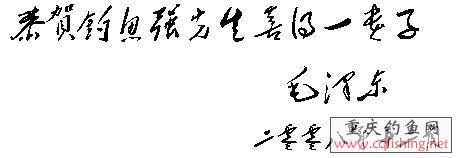 恭賀钓鱼强先生喜得一贵子
毛泽东
二零零八
重庆钓鱼网
www.cqfishing.net